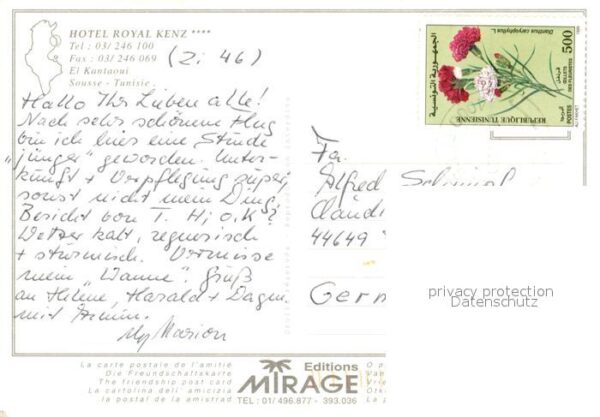 HOTEL ROYAL KENZ ****
Tel : 03/ 246 100
Fax : 03/ 246 069
El Kantaoui
Sousse - Tunisie
(Zi 46)
Hallo Ihr Lieben alle!
Nach sehr schönem Flug
bin ich hier eine Stunde
"jünger" geworden. Unter-
kunft + Verpflegung super,
sonst nicht mein Ding,
Bericht von T. Hi, o.K?
Wetter kalt, regnerisch
+ stürmisch. Vermisse
mein "Wanne". Gruß
an Helene, Harald +
mit
Marion
Fa.
Alfred
44649
Germ
Dianthus caryophyllus L.
الجمهورية التونسية
500
OEILLETS
DES FLEURISTES
POSTES
REPUBLIQUE TUNISIENNE
privacy protection
Datenschutz
La carte postale de l'amitié
Die Freundschaftskarte
The friendship post card
La cartolina dell' amicizia
la postal de la amistad
Editions
MIRAGE
TEL : 01/ 496.877 - 393.036